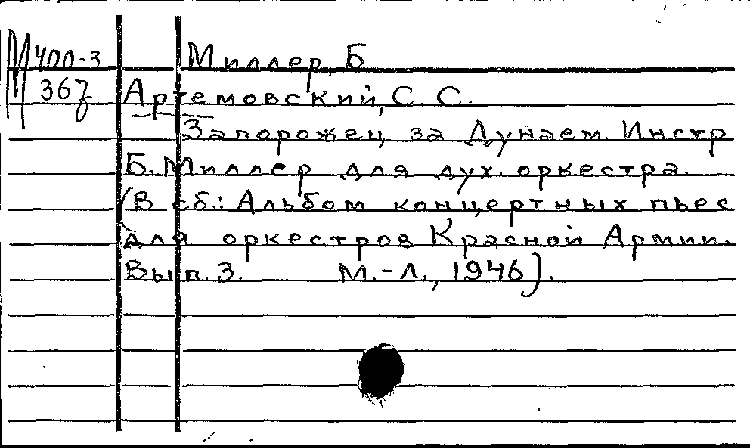 М 400-3 Миллер, Б
367 Артемовский, С. С.
Запорожец за Дунаем. Инстр
Б. Миллер для дух. оркестра.
(В сб.: Альбом концертных пьес
для оркестров Красной Армии.
Вып. 3. М.-Л., 1946).